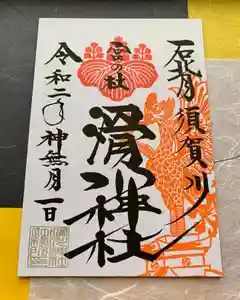 石背 須賀川
宮の杜
滑川神社
令和二年 神無月 一日